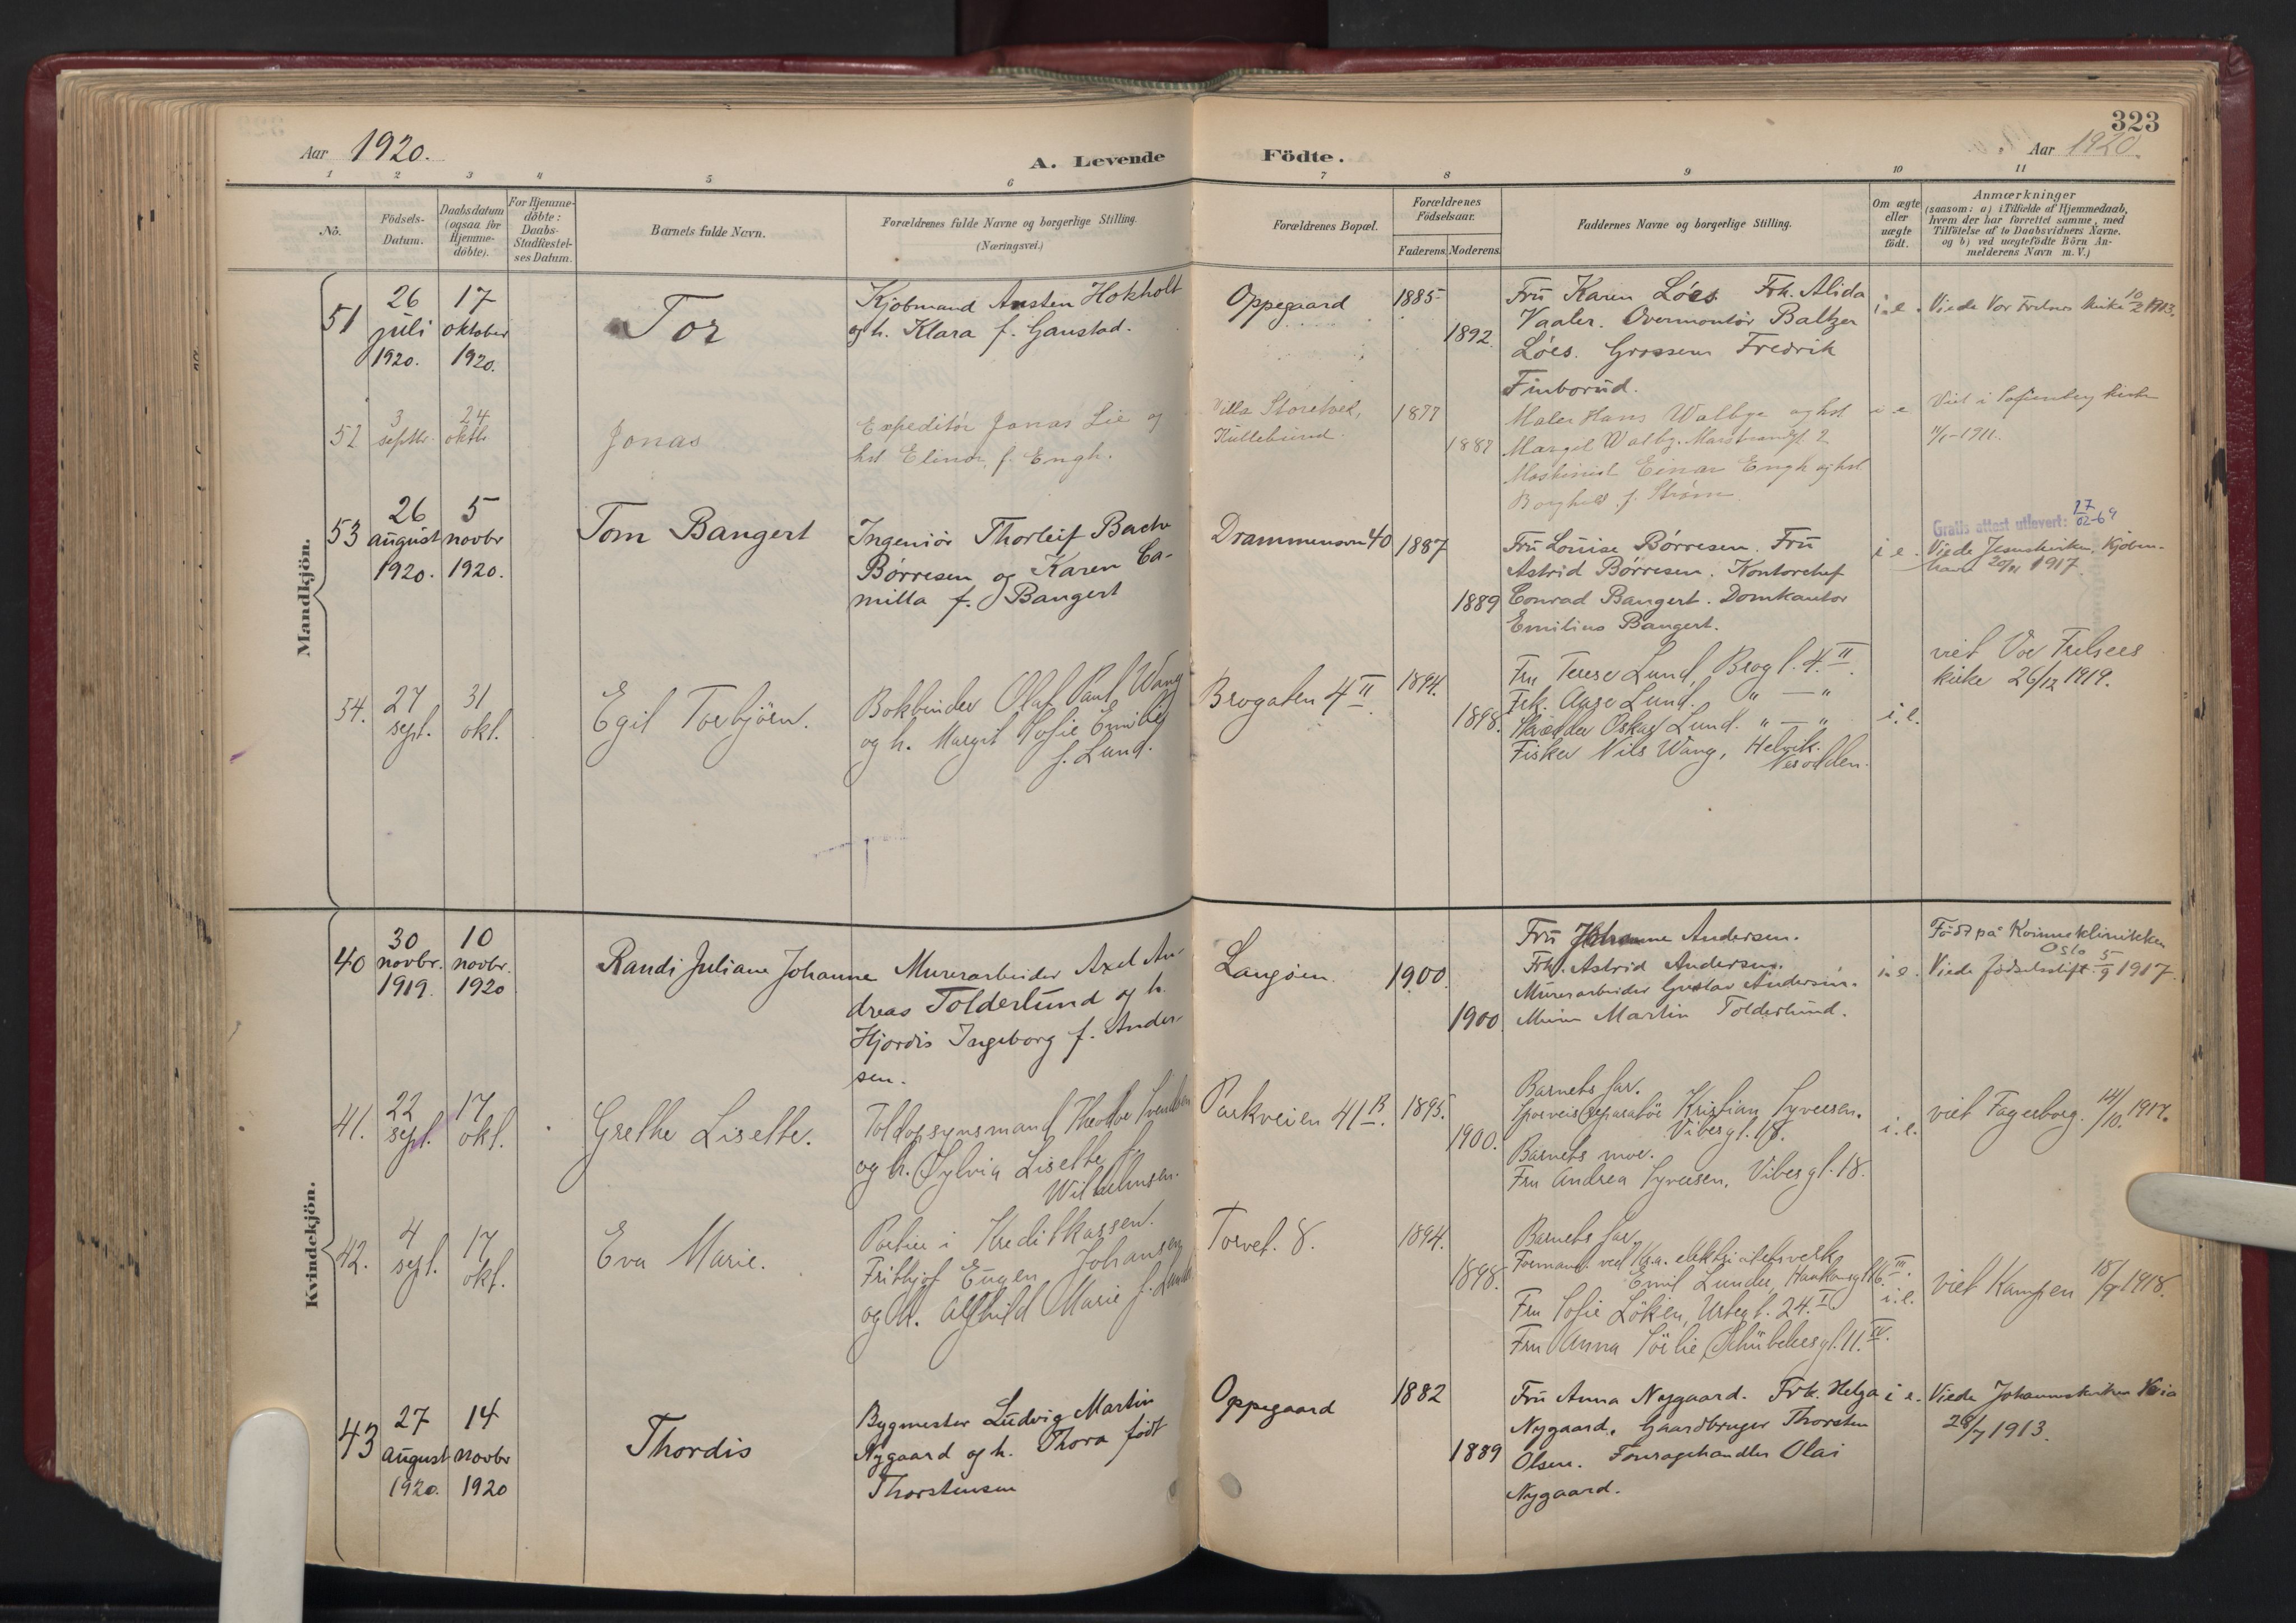 323
Aar 1920.
A. Levende
Födte.
Aar 1920.
1 2 3 4 5 6 7 8 9 10 11
No.
Födsels-
Datum.
Daabsdatum
(ogsaa for
Hjemme-
döbte).
For Hjemme-
döbte:
Daabs-
Stadfæstel-
ses Datum.
Barnets fulde Navn.
Forældrenes fulde Navne og borgerlige Stilling.
(Næringsvei.)
Forældrenes Bopæl.
Forældrenes
Födselsaar.
Faderens. Moderens.
Faddernes Navne og borgerlige Stilling.
Om ægte
eller
uægte
födt.
Anmærkninger
(saasom: a) i Tilfælde af Hjemmedaab,
hvem der har forrettet samme, med
Tilföielse af to Daabsvidners Navne.
og b) ved uægtefödte Börn An-
melderens Navn m. V.)
Mandkjön.
51
26
juli
1920.
17
oktober
1920.
Tor
Kjöbmand Austen Hokholt
og h. Klara f. Ganstad.
Oppegaard
1885
1892.
Fru Karen Löes Frk. Alida
Vaaler. Overmontör Baltzer
Löes. Grosserer Fredrik
Finborud.
i e.
Viede Vor Frelsers kirke 10/2 1913.
52
3
septbr.
24
oktb
Jonas
Expeditör Jonas Lie og
hst Elinor, f. Engh.
Villa Storetvet,
Kullebund.
1877
1887
Maler Hans Walbye og hst
Margit Walby. Marstrandgt. 2
Maskinist Einar Engh og hst
Borghild f. Ström.
i e
Viet i Sofienberg kirke
11/1-1911.
53
26
august
1920.
5
novbr
1920.
Tom Bangert
Ingeniör Thorleif Bache
Börresen og Karen Ca-
milla f. Bangert
Drammensvn 40
1887
1889
Fru Louise Börresen. Fru
Astrid Börresen. Kontorchef
Conrad Bangert. Domkantor
Emilius Bangert.
i e.
Gratis attest utlevert: 27/02-69
Viede Jesuskirken, Kjöben-
havn 20/11 1917.
54.
27
sept.
31
okt.
Egil Torbjörn.
Bokbinder Olaf Paul Wang
og h. Margit Sofie Emilie
f. Lund.
Brogaten 4 II.
1894.
1898.
Fru Terese Lund, Brogt. 4. II.
Frk. Aase Lund. " — "
Skrædder Oskar Lund. " — "
Fisker Nils Wang, Helvik.
Nesodden.
i. e.
viet Vor Frelsers
kirke 26/12 1919.
Kvindekjön.
40
30
novbr.
1919.
10
novbr.
1920
Randi Juliane Johanne
Murerarbeider Axel An-
dreas Tolderlund og h.
Hjördis Ingeborg f. Ander-
sen.
Langöien.
1900.
1900
Fru Johanne Andersen.
Frk. Astrid Andersen.
Murerarbeider Gustav Andersen.
Murer Martin Tolderlund.
i e.
Födt på Kvinneklinikken
Oslo
Viede födselsstift. 5/9 1917.
41.
22
sept.
17
okt.
Grethe Lisette.
Toldopsynsmand Theodor Svendsen
og h. Sylvia Lisette f.
Wilhelmsen.
Parkveien 41 B.
1895.
1900.
Barnets far.
Sporveisreparatör Kristian Syversen.
Vibesgt. 18.
Barnets mor.
Fru Andrea Syversen, Vibesgt. 18.
i. e.
viet Fagerborg. 14/10. 1917.
42.
4
sept.
17
okt.
Eva Marie.
Portier i Kreditkassen.
Frithjof Eugen Johansen
og h. Alfhild Marie f. Lunde
Torvet. 8.
1894.
1898.
Barnets far.
Formand ved Kr.a. elektricitetsverk
Emil Lunde, Haakonsgt. 16. III.
Fru Sofie Löken, Urtegt. 24. I
Fru Anna Sörlie, Schübelersgt. 11. IV.
i. e.
viet Kampen 18/9 1918.
43
27
august
1920.
14
novbr
1920
Thordis
Bygmester Ludvig Martin
Nygaard og h. Thora födt
Thorstensen
Oppegaard
1882
1889
Fru Anna Nygaard. Frk. Helga
Nygaard. Gaardbruger Thorsten
Olsen. Fouragehandler Olai
Nygaard.
i e.
Viede Johanneskirken Kr.ia
28/7 1913.